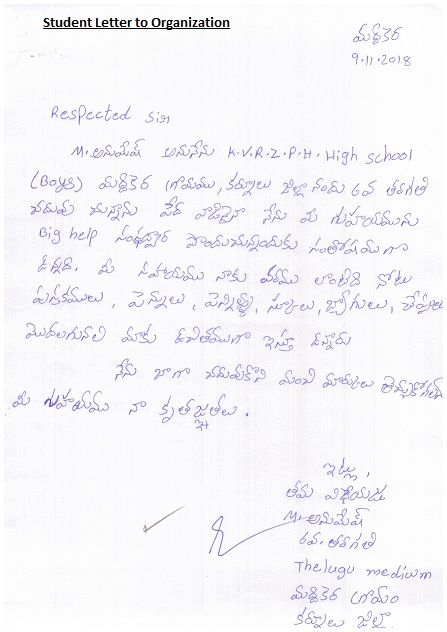 Student Letter to Organization
మద్దికెర
9.11.2018
Respected Sir
M. అనుమేష్ అనునేను K.V.R.Z.P.H. High school
(Boys) మద్దికెర గ్రామము, కర్నూలు జిల్లా నందు 6వ తరగతి
చదువు చున్నాను పేద వాడినైన నేను మీ సహాయమును
Big help సంస్థద్వార పొందుచున్నందుకు సంతోషముగా
ఉన్నది. మీ సహాయము నాకు వరము లాంటిది నోటు
పుస్తకములు, పెన్నులు, పెన్సిల్స్, స్కేలు, బ్యాగులు,
మొదలగునవి మాకు ఉచితముగా ఇస్తూ ఉన్నారు
నేను బాగా చదువుకొని మంచి మార్కులు తెచ్చుకోగలను
మీ సహాయము నా కృతజ్ఞతలు.
ఇట్లు,
తమ విధేయుడు
M. అనుమేష్
6వ. తరగతి
Thelugu medium
మద్దికెర గ్రామం
కర్నూలు జిల్లా.